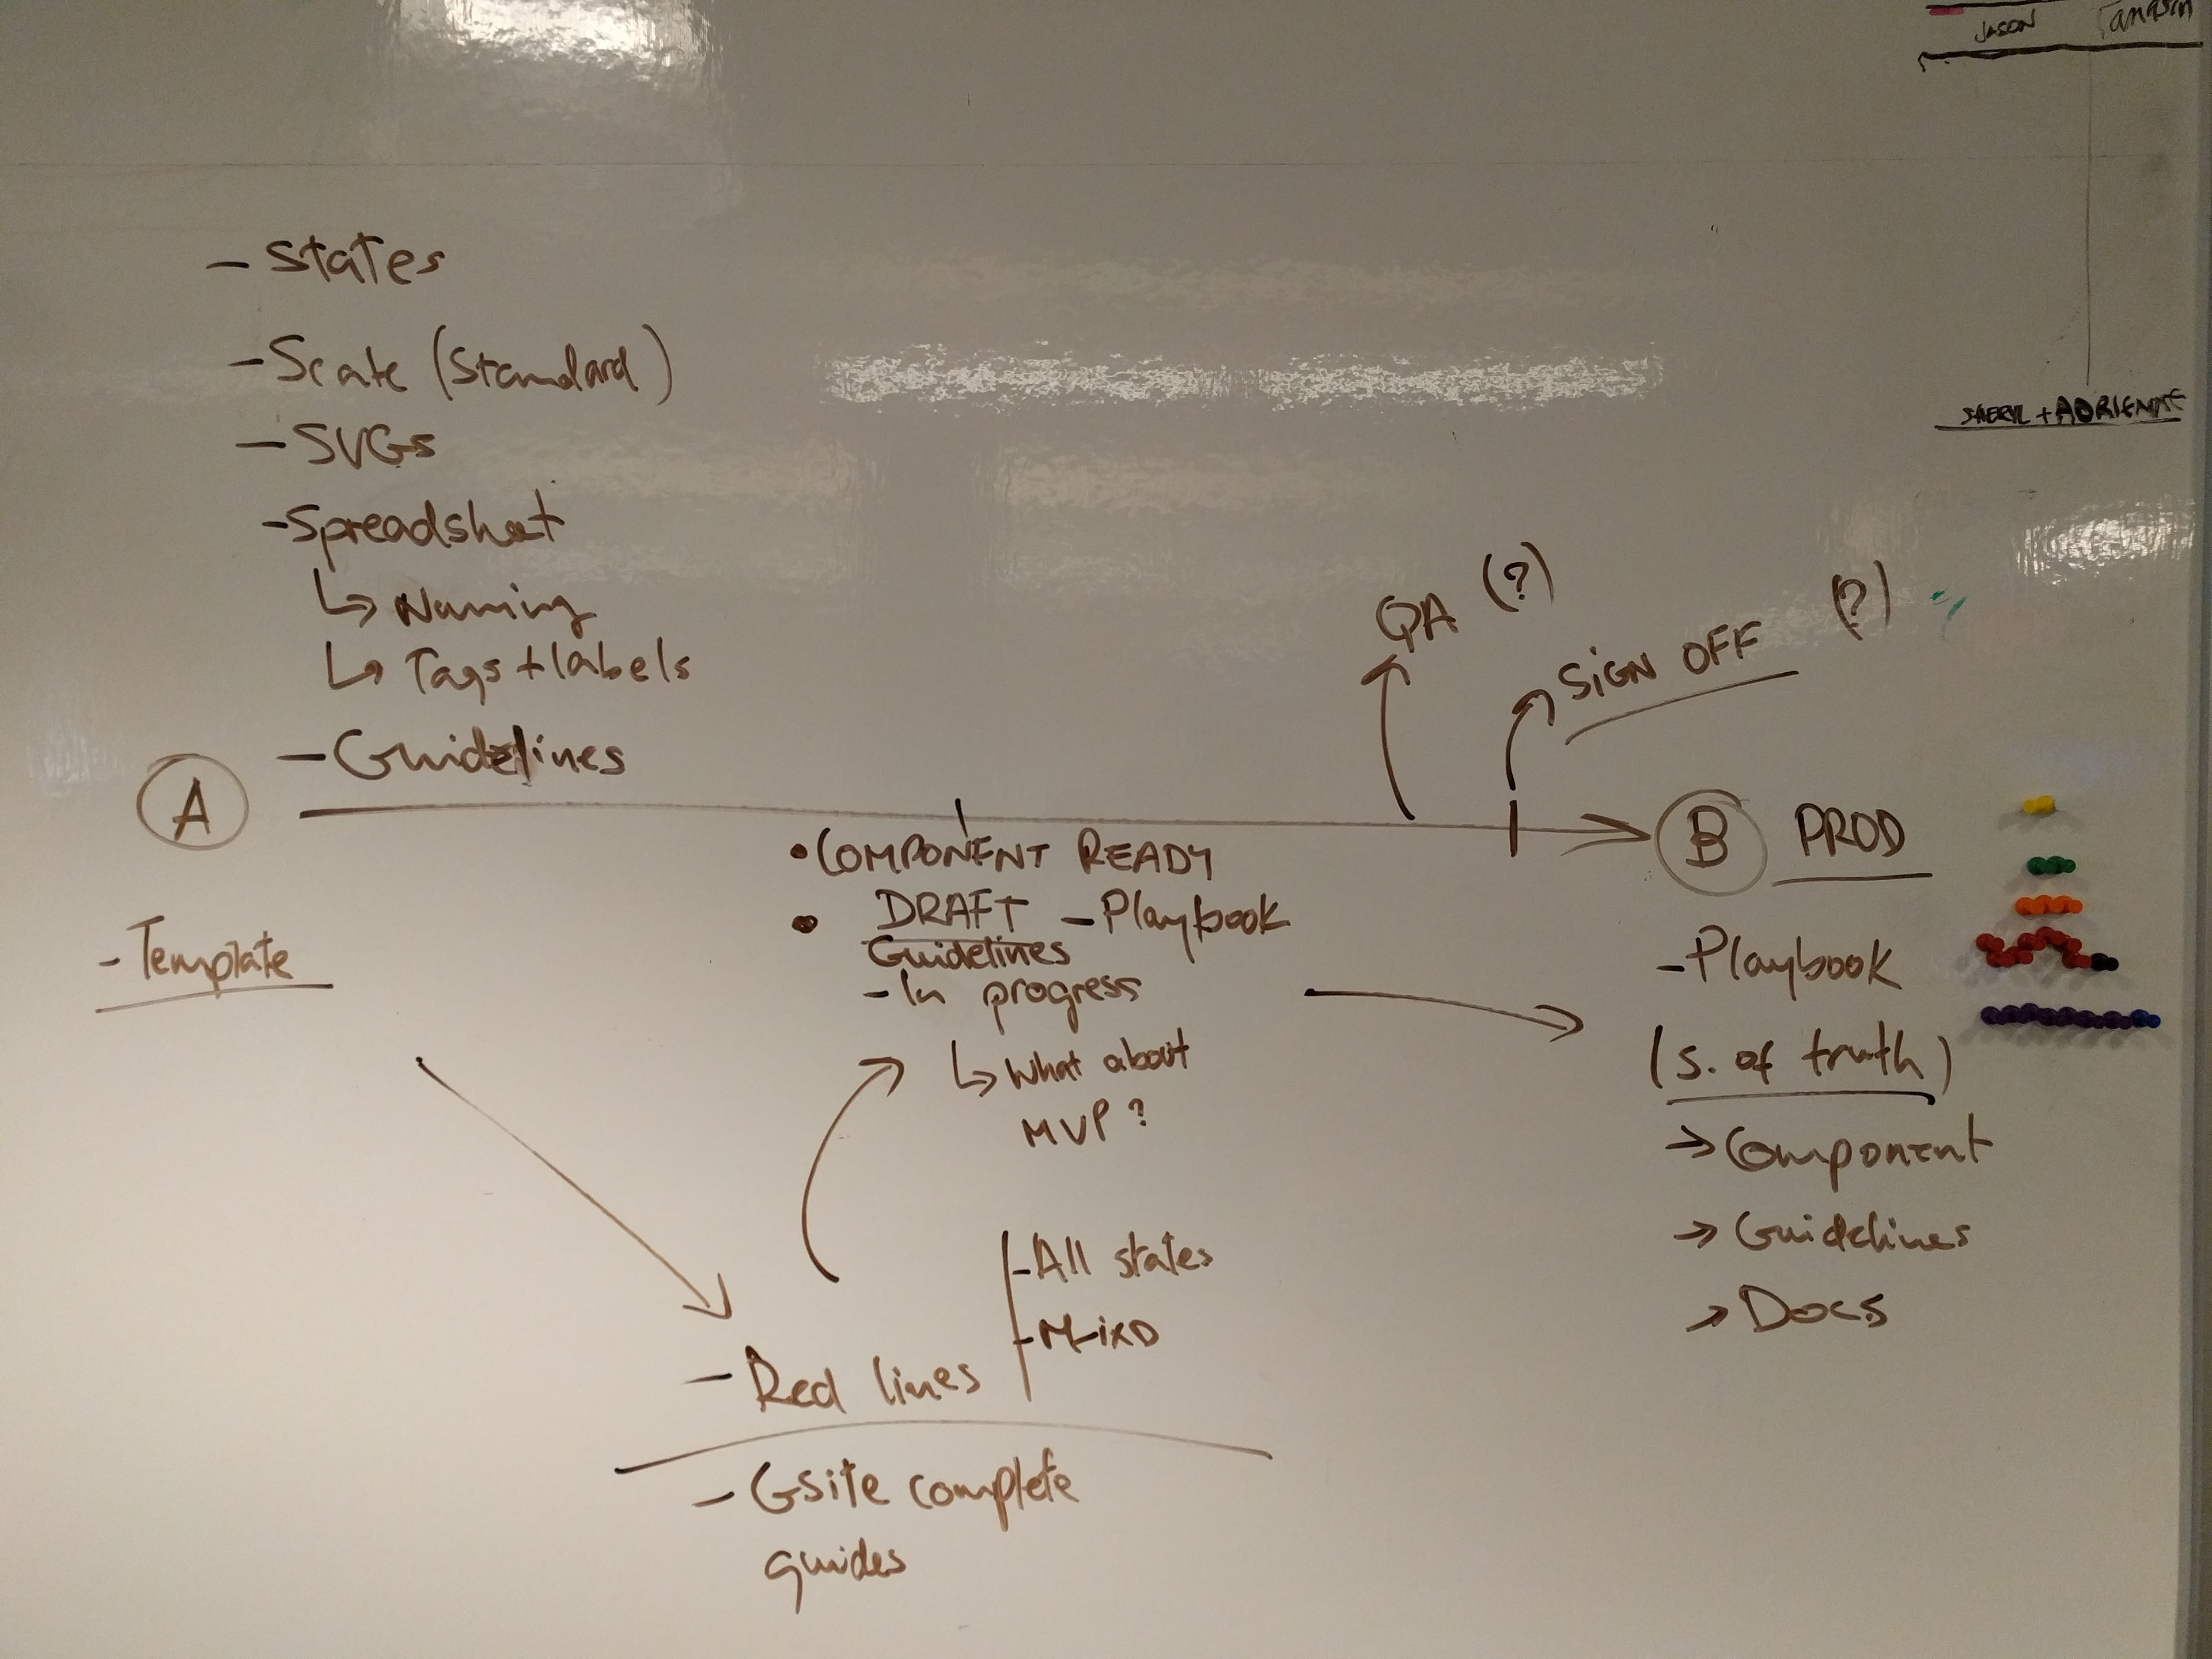 JASON
- States
- Scale (Standard)
SHERYL + ADRIENNE
- SVGs
- Spreadsheet
↳ Naming
↳ Tags + labels
- Guidelines
QA (?)
SIGN OFF (?)
A
B PROD
- Template
• COMPONENT READY
• DRAFT - Playbook
Guidelines
- In progress
↳ What about
MVP?
- Playbook
(s. of truth)
→ Component
→ Guidelines
→ Docs
- All states
- Red lines
- Gsite complete
guides